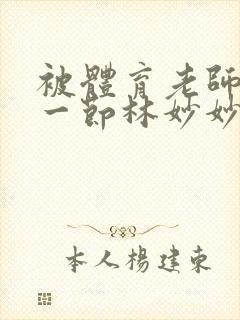 被體育老師
一節林妙妙
本人楊建東